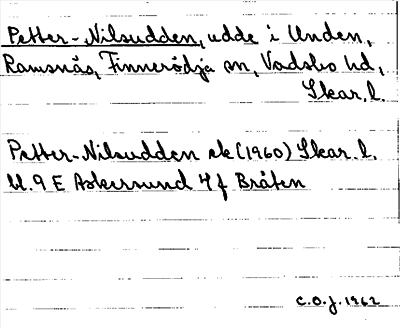 Petter-Nilsudden, udde i Unden,
Ramsnäs, Finnerödja sn, Vadsbo hd,
Skar. l.
Petter-Nilsudden ek (1960) Skar. l.
bl. 9 E Askersund 4 f Bråten
C.O.J. 1962